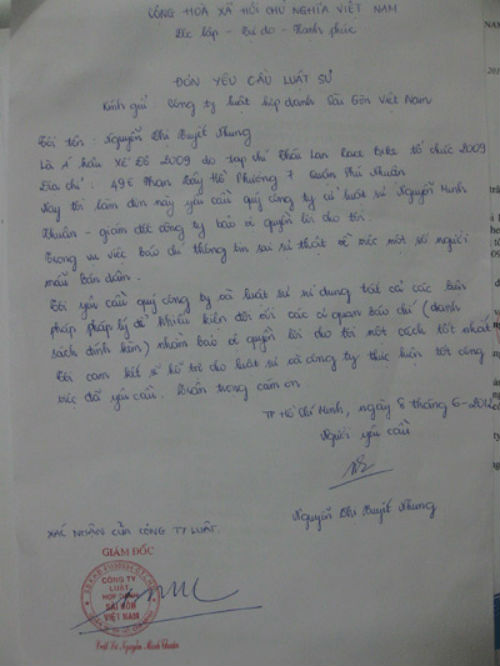 CỘNG HOÀ XÃ HỘI CHỦ NGHĨA VIỆT NAM
Độc lập - Tự do - Hạnh phúc
ĐƠN YÊU CẦU LUẬT SƯ
Kính gửi Công ty luật hợp danh Sài Gòn Việt Nam
Tôi tên : Nguyễn Thị Tuyết Nhung
Là Á hậu Xế Độ 2009 do tạp chí Thái Lan Race Bike tổ chức 2009
Địa chỉ : 49E Phan Đăng Phường 7 Quận Phú Nhuận
Nay tôi làm đơn này yêu cầu quý công ty cử luật sư Nguyễn Minh
Thuận - giám đốc công ty bảo vệ quyền lợi cho tôi.
Trong vụ việc báo chí thông tin sai sự thật về việc một số người
mẫu bán dâm.
Tôi yêu cầu quý công ty và luật sư sử dụng tất cả các biện
pháp pháp lý để khiếu kiện đối với các cơ quan báo chí (danh
sách đính kèm) nhằm bảo vệ quyền lợi cho tôi một cách tốt nhất
Tôi cam kết sẽ hỗ trợ cho luật sư và công ty thực hiện tốt công
việc đã yêu cầu. Trân trọng cám ơn
TP Hồ Chí Minh, ngày 8 tháng 6-2012
Người yêu cầu
Nguyễn Thị Tuyết Nhung
XÁC NHẬN CỦA CÔNG TY LUẬT.
GIÁM ĐỐC
CÔNG TY
LUẬT
HỢP DANH
SÀI GÒN
VIỆT NAM
Luật Sư Nguyễn Minh Thuận